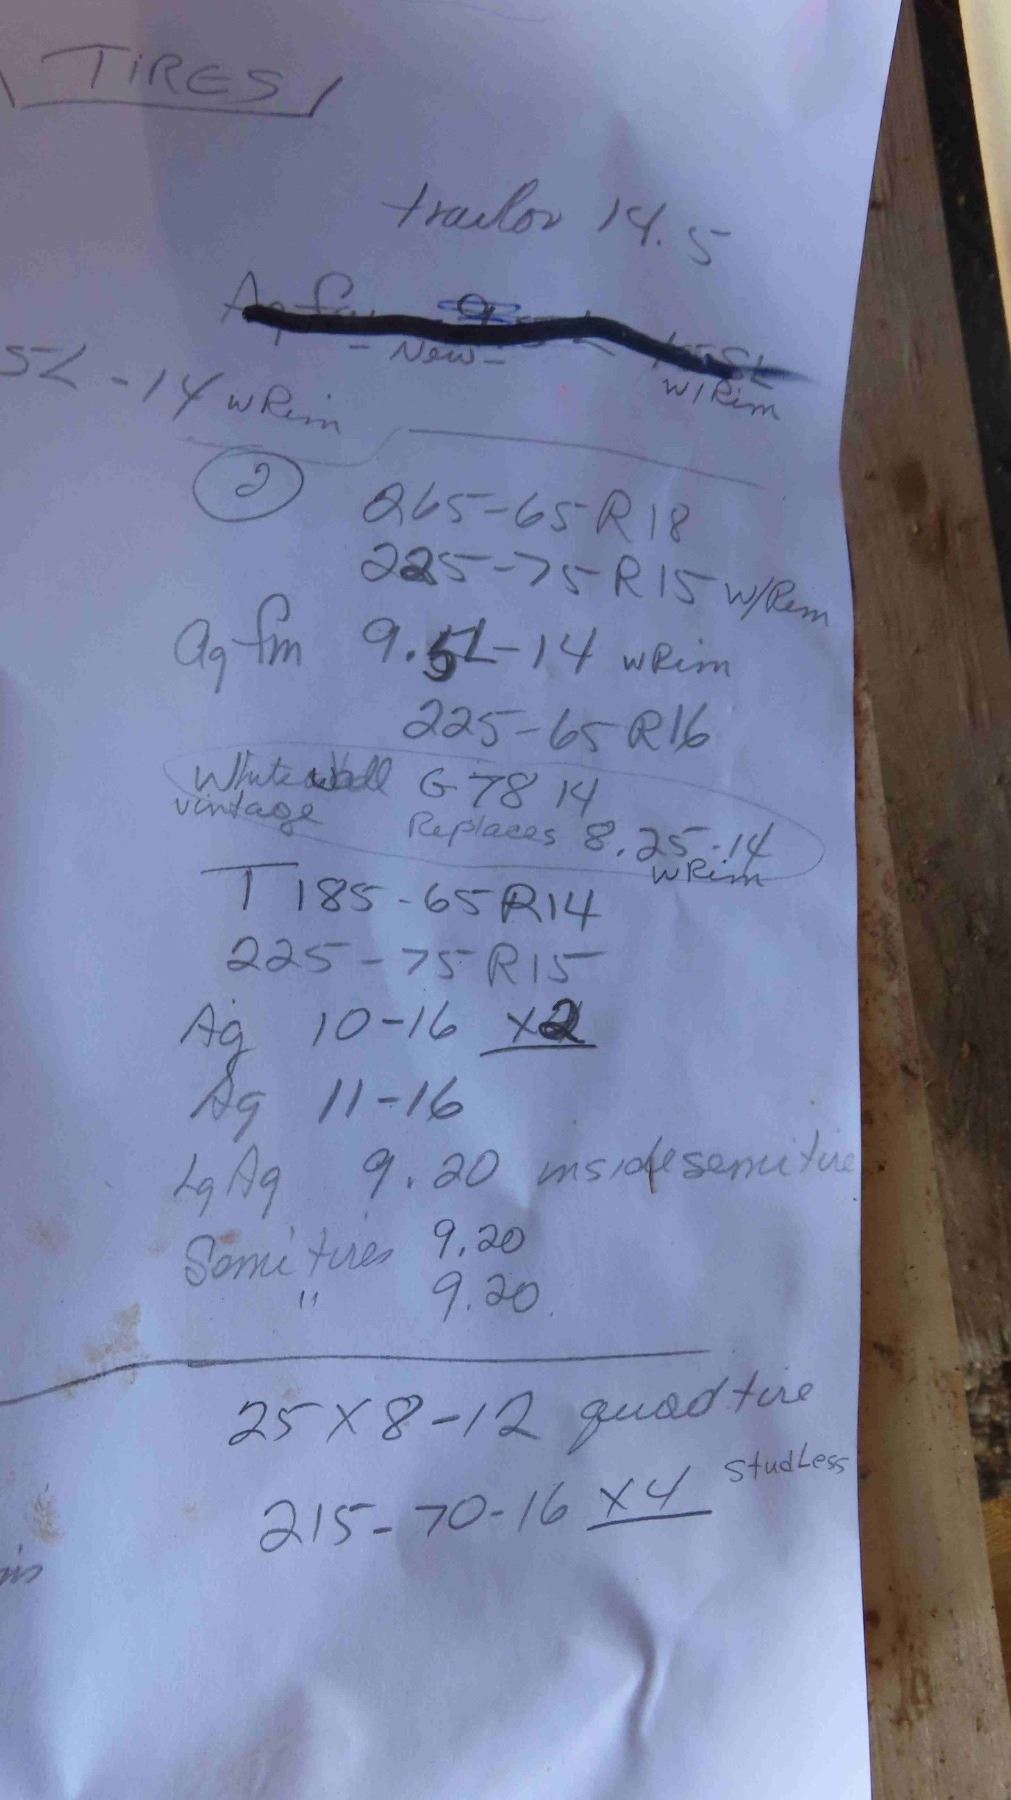 TIRES
trailor 14.5
Ag fm
- New -
w/Rim
5L - 14 wRim
2
265-65 R18
225-75 R15 w/Rim
Ag fm 9.5L-14 wRim
225-65 R16
White wall G 78 14
vintage Replaces 8.25-14
wRim
T 185-65 R14
225-75 R15
Ag 10-16 x2
Ag 11-16
Lg Ag 9.20 inside semi tire
Semi tires 9.20
" 9.20.
25 X 8-12 quad tire
215-70-16 x4 studLess